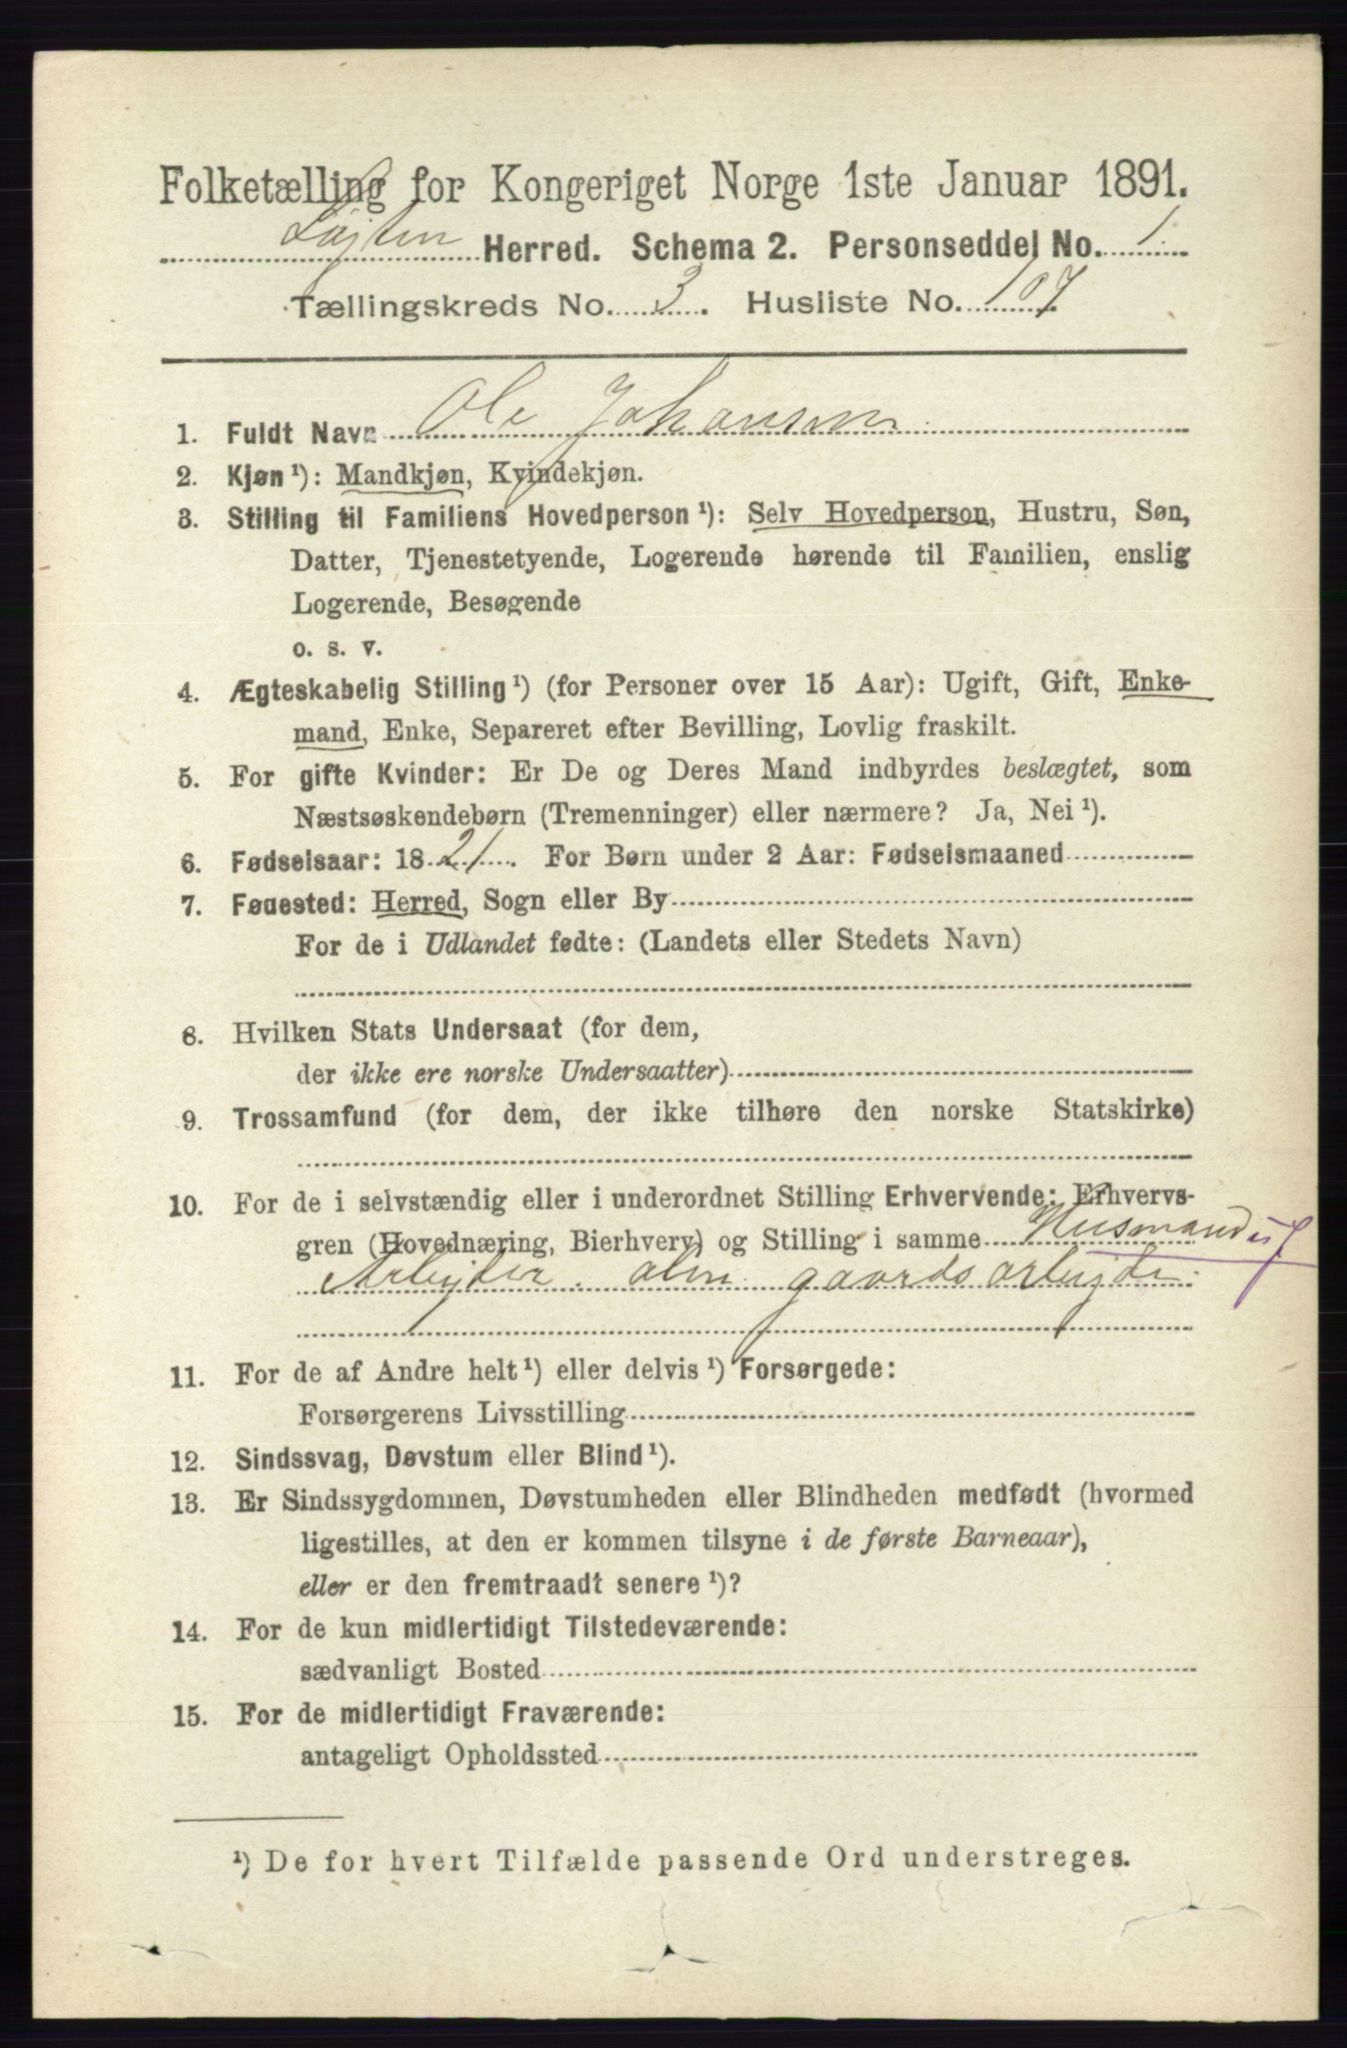 Folketælling for Kongeriget Norge 1ste Januar 1891.
Løjten Herred. Schema 2. Personseddel No. 1
Tællingskreds No. 3. Husliste No. 107.
1. Fuldt Navn Ole Johansen
2. Kjøn ¹): Mandkjøn, Kvindekjøn.
3. Stilling til Familiens Hovedperson ¹): Selv Hovedperson, Hustru, Søn,
Datter, Tjenestetyende, Logerende hørende til Familien, enslig
Logerende, Besøgende
o. s. v.
4. Ægteskabelig Stilling ¹) (for Personer over 15 Aar): Ugift, Gift, Enke-
mand, Enke, Separeret efter Bevilling, Lovlig fraskilt.
5. For gifte Kvinder: Er De og Deres Mand indbyrdes beslægtet, som
Næstsøskendebørn (Tremenninger) eller nærmere? Ja, Nei ¹).
6. Fødselsaar: 1821. For Børn under 2 Aar: Fødselsmaaned
7. Føuested: Herred, Sogn eller By
For de i Udlandet fødte: (Landets eller Stedets Navn)
8. Hvilken Stats Undersaat (for dem,
der ikke ere norske Undersaatter)
9. Trossamfund (for dem, der ikke tilhøre den norske Statskirke)
10. For de i selvstændig eller i underordnet Stilling Erhvervende: Erhvervs-
gren (Hovednæring, Bierhverv) og Stilling i samme Husmand
Arbejder alm gaardsarbejde
11. For de af Andre helt ¹) eller delvis ¹) Forsørgede:
Forsørgerens Livsstilling
12. Sindssvag, Døvstum eller Blind ¹).
13. Er Sindssygdommen, Døvstumheden eller Blindheden medfødt (hvormed
ligestilles, at den er kommen tilsyne i de første Barneaar),
eller er den fremtraadt senere ¹)?
14. For de kun midlertidigt Tilstedeværende:
sædvanligt Bosted
15. For de midlertidigt Fraværende:
antageligt Opholdssted
¹) De for hvert Tilfælde passende Ord understreges.